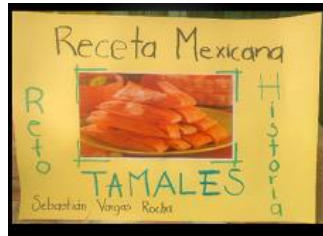 Receta Mexicana
Reto
Historia
TAMALES
Sebastián Vargas Rocha